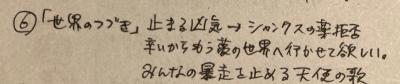 ⑥「世界のつづき」止まる凶気→シャンクスの薬拒否
辛いからもう夢の世界へ行かせて欲しい。
みんなの暴走を止める天使の歌